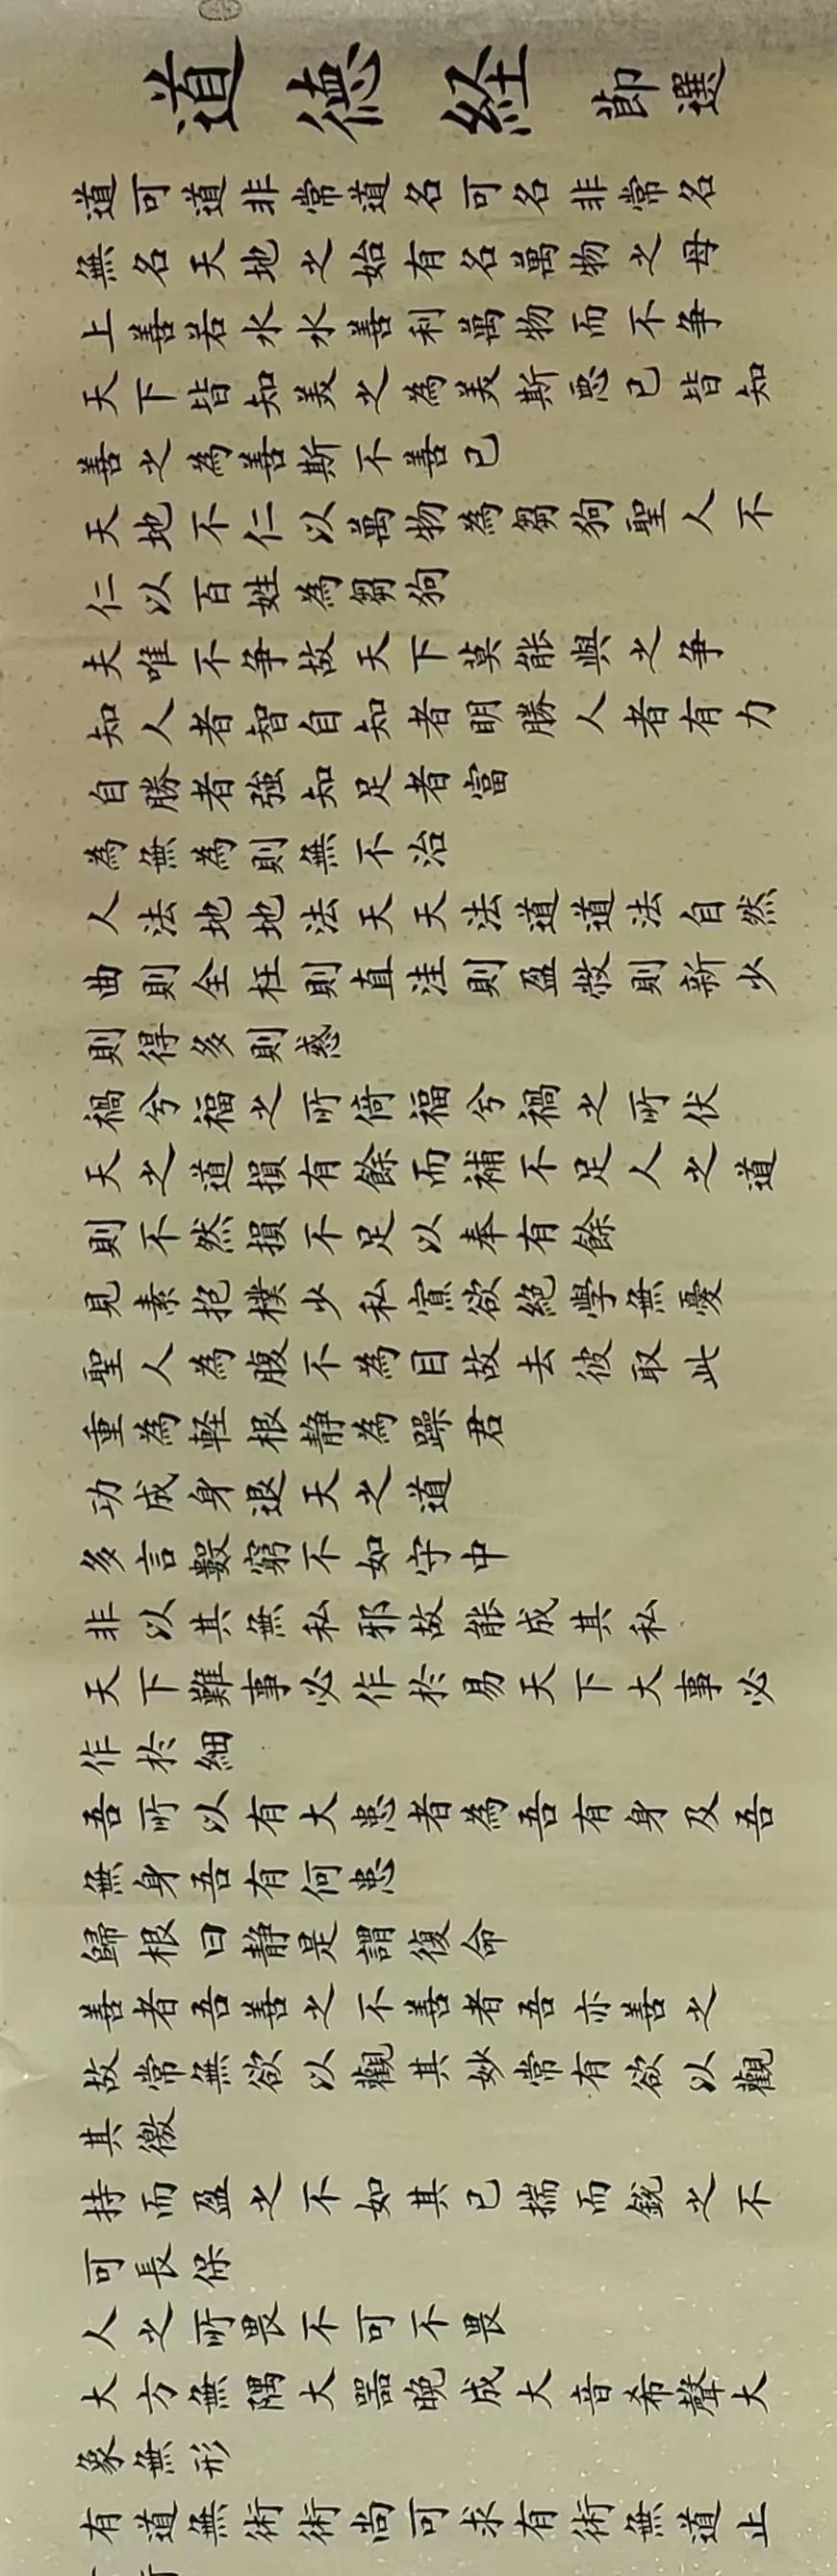 道德経 節選
道可道非常道名可名非常名
無名天地之始有名萬物之母
上善若水水善利萬物而不争
天下皆知美之為美斯悪已皆知
善之為善斯不善已
天地不仁以萬物為芻狗聖人不
仁以百姓為芻狗
夫唯不争故天下莫能與之争
知人者智自知者明勝人者有力
自勝者強知足者富
為無為則無不治
人法地地法天天法道道法自然
曲則全枉則直洼則盈敝則新少
則得多則惑
禍兮福之所倚福兮禍之所伏
天之道損有餘而補不足人之道
則不然損不足以奉有餘
見素抱樸少私寡欲絶學無憂
聖人為腹不為目故去彼取此
重為軽根静為躁君
功成身退天之道
多言數窮不如守中
非以其無私邪故能成其私
天下難事必作於易天下大事必
作於細
吾所以有大患者為吾有身及吾
無身吾有何患
歸根曰静是謂復命
善者吾善之不善者吾亦善之
故常無欲以觀其妙常有欲以觀
其徼
持而盈之不如其已揣而鋭之不
可長保
人之所畏不可不畏
大方無隅大器晩成大音希聲大
象無形
有道無術術尚可求有術無道止